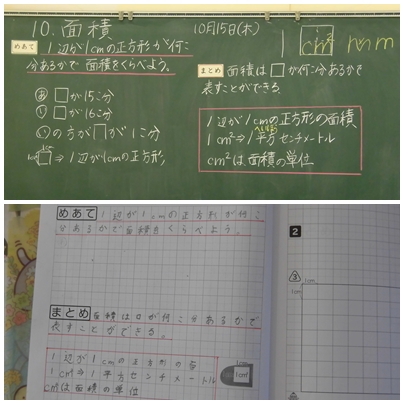 10. 面積
10月15日(木)
めあて
1辺が1cmの正方形が何こ
分あるかで面積をくらべよう。
あ □が15こ分
い □が16こ分
いの方が□が1こ分
⇒1辺が1cmの正方形
cm²
まとめ 面積は□が何こ分あるかで
表すことができる。
1辺が1cmの正方形の面積
1cm²⇒1平方センチメートル
cm²は面積の単位
めあて 1辺が1cmの正方形が何こ
分あるかで面積をくらべよう。
まとめ 面積は□が何こ分あるかで
表すことができる。
1辺が1cmの正方形の面
1cm²⇒1平方センチメートル
cm²は面積の単位
1cm²
2
3
1cm
1cm